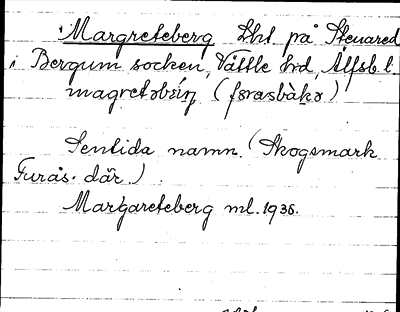 Margreteberg Lht på Stenared
i Bergum socken, Vättle hd, Älfsb. l.
magretəbsíŋ (fɒrasbàkə)
Sentida namn. (Skogsmark
Furås. där.)
Margareteberg ml. 1936.